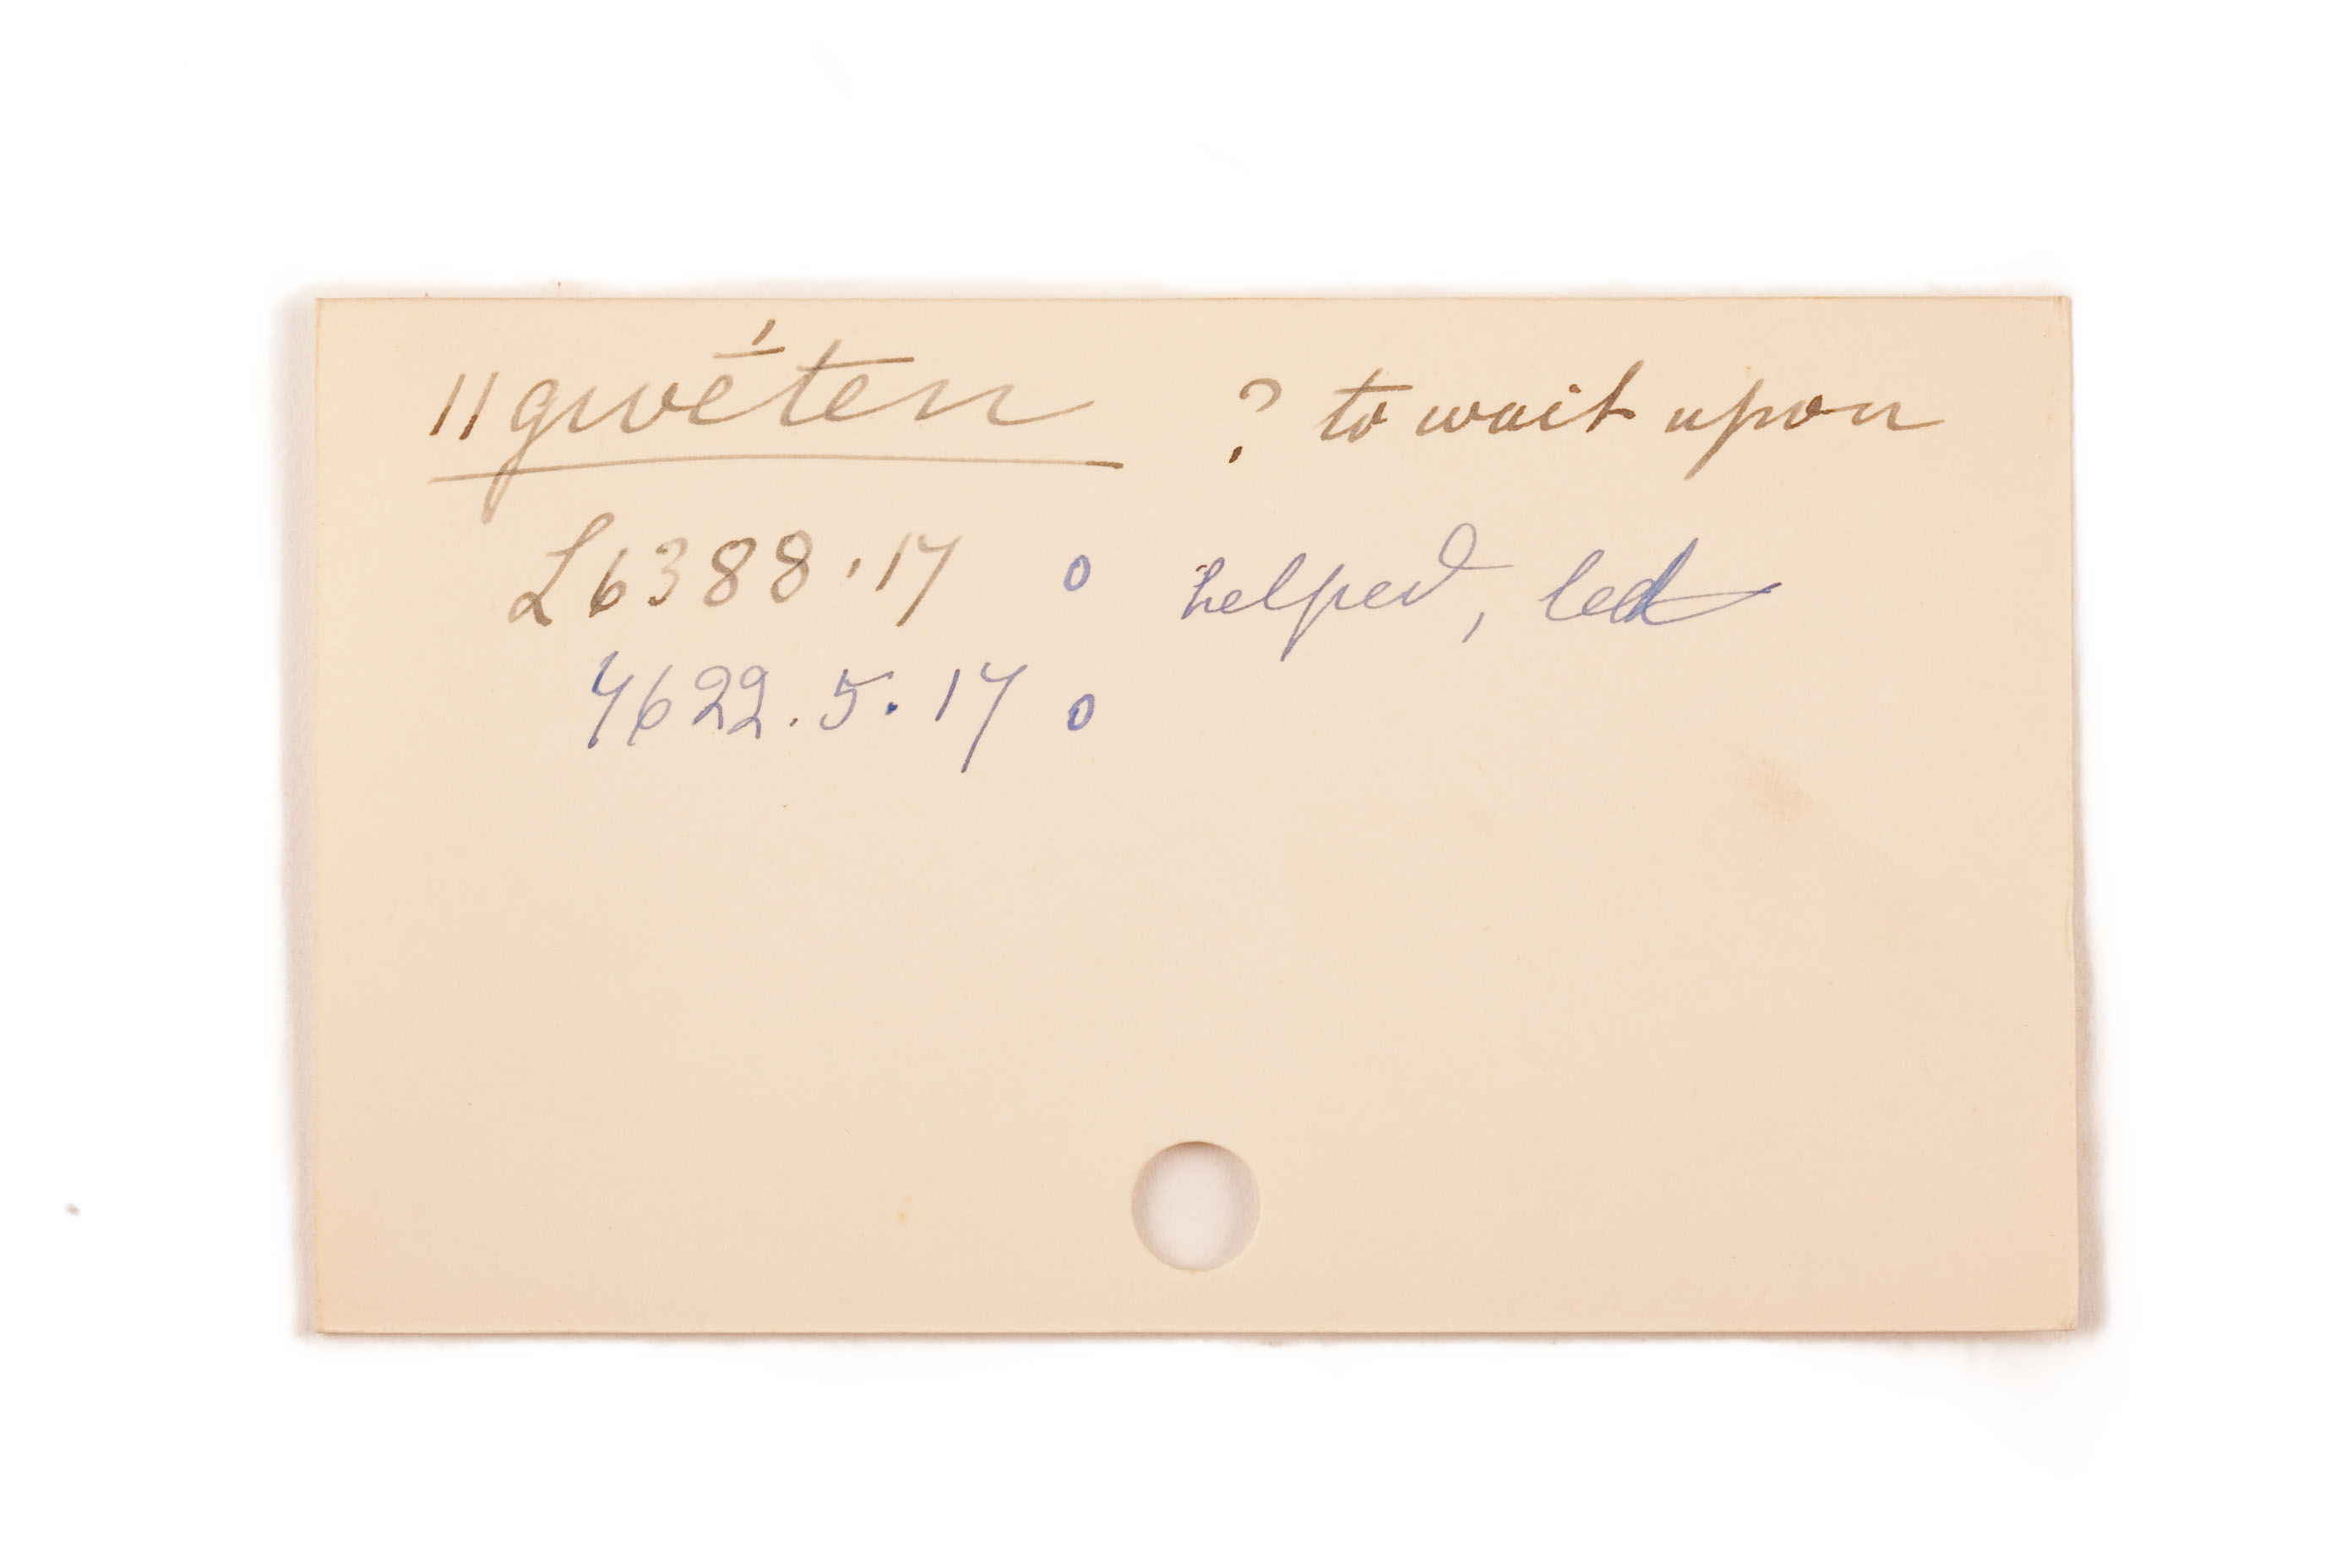 ||gwḗten ? to wait upon
L6388.17 o helped, led
4622.5.17 o